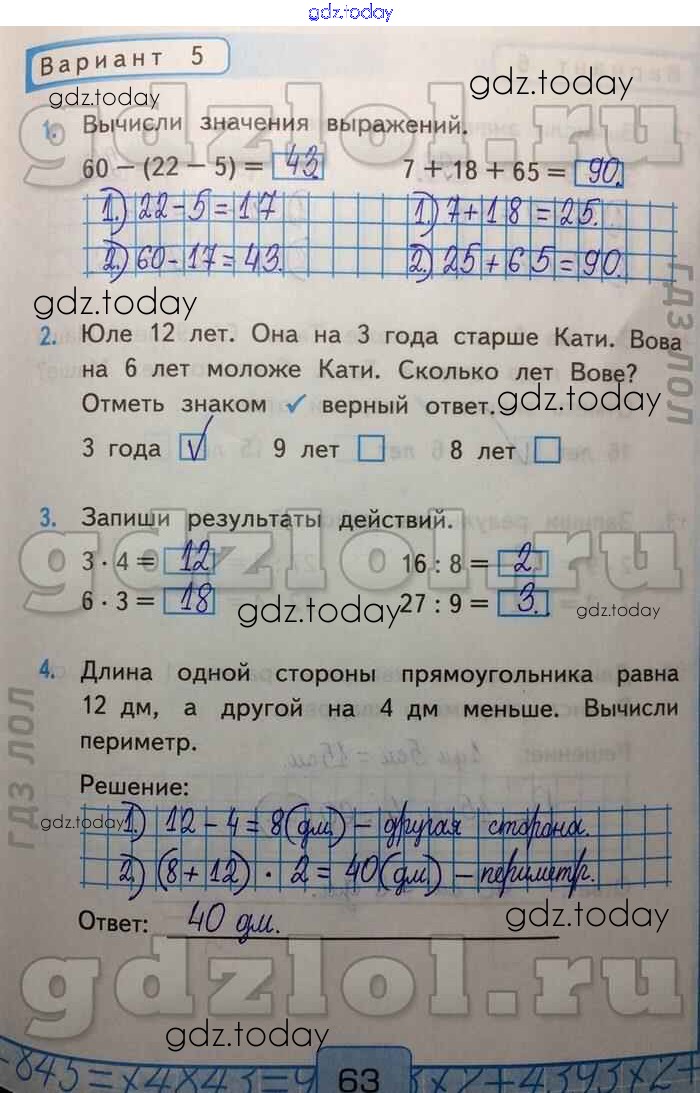 gdz.today
Вариант 5
gdz.today
gdz.today
gdzlol.ru
1. Вычисли значения выражений.
60 − (22 − 5) = 43 7 + 18 + 65 = 90.
1.) 22-5=17 1.) 7+18=25.
2.) 60-17=43. 2.) 25+65=90.
gdz.today
ГДЗ ЛОЛ
2. Юле 12 лет. Она на 3 года старше Кати. Вова
на 6 лет моложе Кати. Сколько лет Вове?
Отметь знаком ✓ верный ответ.
gdz.today
3 года ✓ 9 лет 8 лет
3. Запиши результаты действий.
gdzlol.ru
3 · 4 = 12 16 : 8 = 2.
6 · 3 = 18 27 : 9 = 3.
gdz.today
gdz.today
4. Длина одной стороны прямоугольника равна
12 дм, а другой на 4 дм меньше. Вычисли
периметр.
ГДЗ ЛОЛ
Решение:
gdz.today
1.) 12 - 4 = 8(дм.) – другая сторона.
2.) (8 + 12) · 2 = 40(дм) – периметр.
Ответ: 40 дм.
gdz.today
gdzlol.ru
gdz.today
63